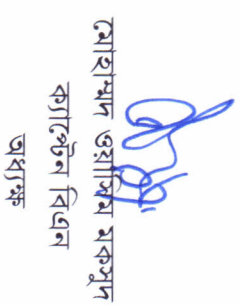 মোহাম্মদ ওয়াসিম মকসুদ
ক্যাপ্টেন বিএন
অধ্যক্ষ